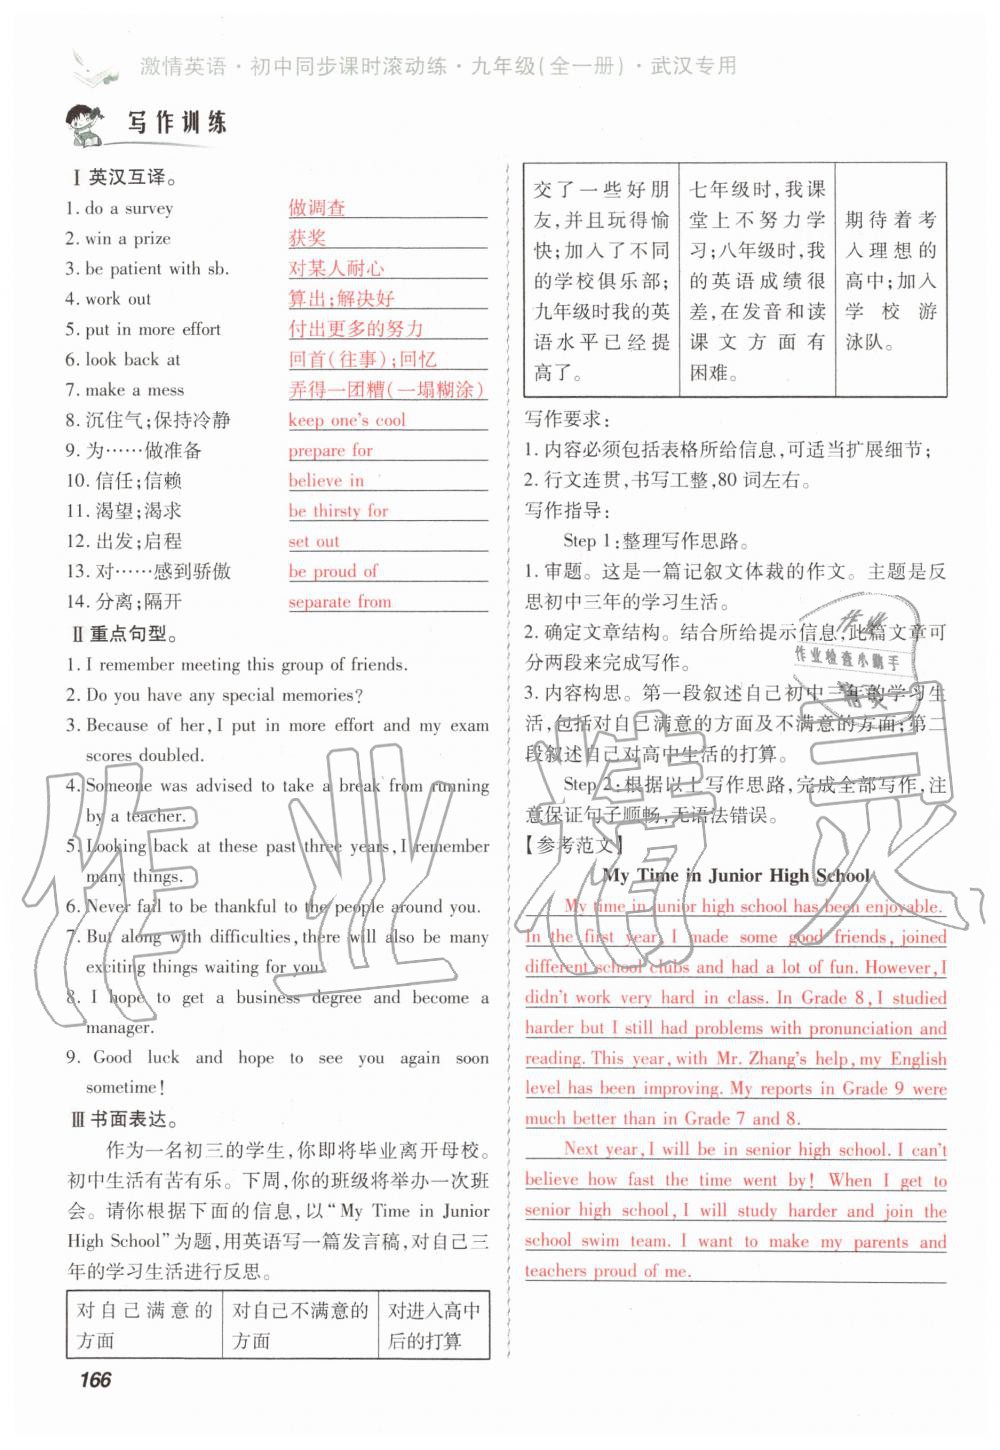 激情英语·初中同步课时滚动练·九年级(全一册)·武汉专用
写作训练
Ⅰ 英汉互译。
1. do a survey 做调查
2. win a prize 获奖
3. be patient with sb. 对某人耐心
4. work out 算出;解决好
5. put in more effort 付出更多的努力
6. look back at 回首(往事);回忆
7. make a mess 弄得一团糟(一塌糊涂)
8. 沉住气;保持冷静 keep one's cool
9. 为……做准备 prepare for
10. 信任;信赖 believe in
11. 渴望;渴求 be thirsty for
12. 出发;启程 set out
13. 对……感到骄傲 be proud of
14. 分离;隔开 separate from
Ⅱ 重点句型。
1. I remember meeting this group of friends.
2. Do you have any special memories?
3. Because of her, I put in more effort and my exam
scores doubled.
4. Someone was advised to take a break from running
by a teacher.
5. Looking back at these past three years, I remember
many things.
6. Never fail to be thankful to the people around you.
7. But along with difficulties, there will also be many
exciting things waiting for you.
8. I hope to get a business degree and become a
manager.
9. Good luck and hope to see you again soon
sometime!
Ⅲ 书面表达。
作为一名初三的学生,你即将毕业离开母校。
初中生活有苦有乐。下周,你的班级将举办一次班
会。请你根据下面的信息,以“My Time in Junior
High School”为题,用英语写一篇发言稿,对自己三
年的学习生活进行反思。
对自己满意的 对自己不满意的 对进入高中
方面 方面 后的打算
166
交了一些好朋 七年级时,我课
友,并且玩得愉 堂上不努力学 期待着考
快;加入了不同 习;八年级时,我 入理想的
的学校俱乐部; 的英语成绩很 高中;加入
九年级时我的英 差,在发音和读 学校游
语水平已经提 课文方面有 泳队。
高了。 困难。
写作要求:
1. 内容必须包括表格所给信息,可适当扩展细节;
2. 行文连贯,书写工整,80 词左右。
写作指导:
Step 1:整理写作思路。
1. 审题。这是一篇记叙文体裁的作文。主题是反
思初中三年的学习生活。
2. 确定文章结构。结合所给提示信息,此篇文章可
分两段来完成写作。
3. 内容构思。第一段叙述自己初中三年的学习生
活,包括对自己满意的方面及不满意的方面;第二
段叙述自己对高中生活的打算。
Step 2:根据以上写作思路,完成全部写作,注
意保证句子顺畅,无语法错误。
【参考范文】
My Time in Junior High School
My time in junior high school has been enjoyable.
In the first year, I made some good friends, joined
different school clubs and had a lot of fun. However, I
didn't work very hard in class. In Grade 8, I studied
harder but I still had problems with pronunciation and
reading. This year, with Mr. Zhang's help, my English
level has been improving. My reports in Grade 9 were
much better than in Grade 7 and 8.
Next year, I will be in senior high school. I can't
believe how fast the time went by! When I get to
senior high school, I will study harder and join the
school swim team. I want to make my parents and
teachers proud of me.
作业
作业检查小助手
精灵
作业精灵